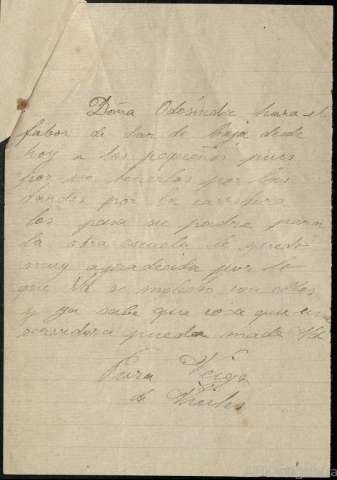 Doña Odosinda hara el
fabor de dar de baja desde
hoy a los pequeños pues
por no tenerlos por las
tardes por la carretera
los pasa su padre para
la otra escuela le quedo
muy agradecida por lo
que Vd se molesto con ellos
y ya sabe que cosa que
servidora queda made Vd
Pura Veiga
de